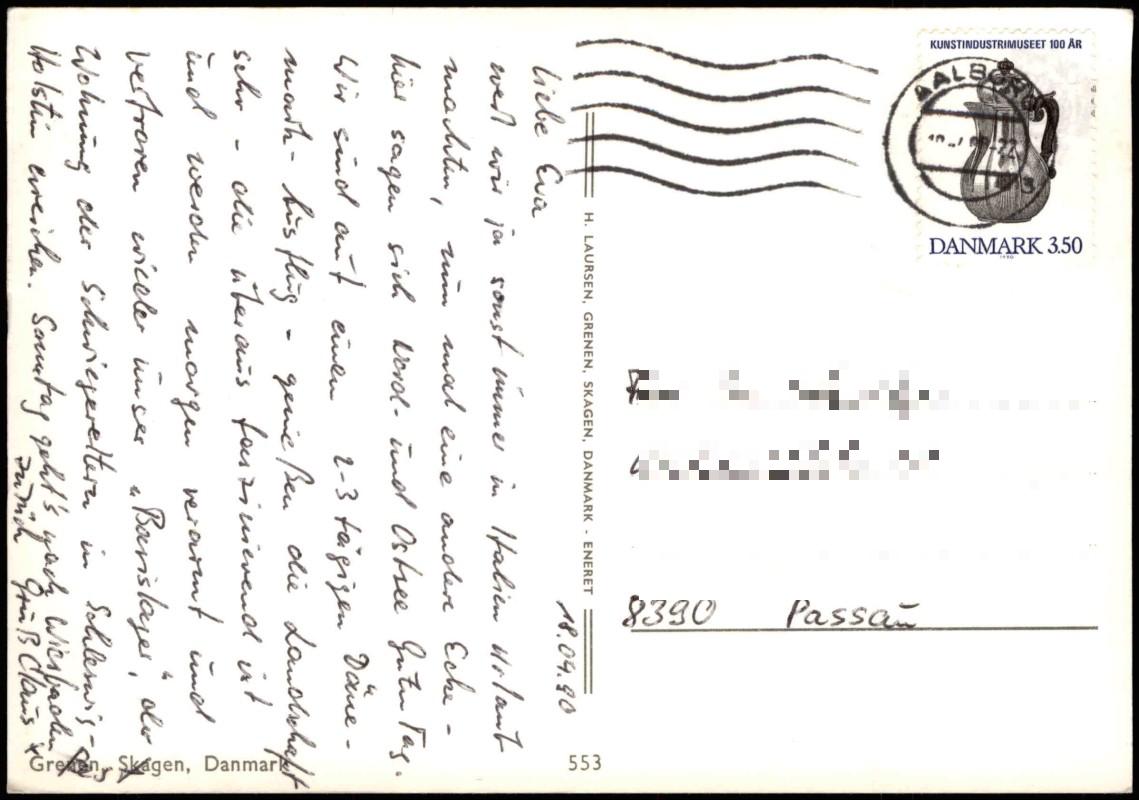 Liebe Eva 18.04.90
weil wir ja sonst immer in Italien Urlaub
machten, nun mal eine andere Ecke -
hier sagen sich Nord- und Ostsee Guten Tag.
Wir sind auf einem 2-3 tägigen Däne-
mark-Ausflug - genießen die Landschaft
sehr - die überaus faszinierend ist
und werden morgen verarmt und
verfroren wieder unser „Basislager", der
Wohnung der Schwiegereltern in Schleswig-
Holstein erreichen. Sonntag geht's nach Wiesbaden
zurück Gruß Claus +
Grenen, Skagen, Danmark
553
H. LAURSEN, GRENEN, SKAGEN, DANMARK - ENERET
KUNSTINDUSTRIMUSEET 100 ÅR
AALBORG
DANMARK 3.50
1990
8390 Passau